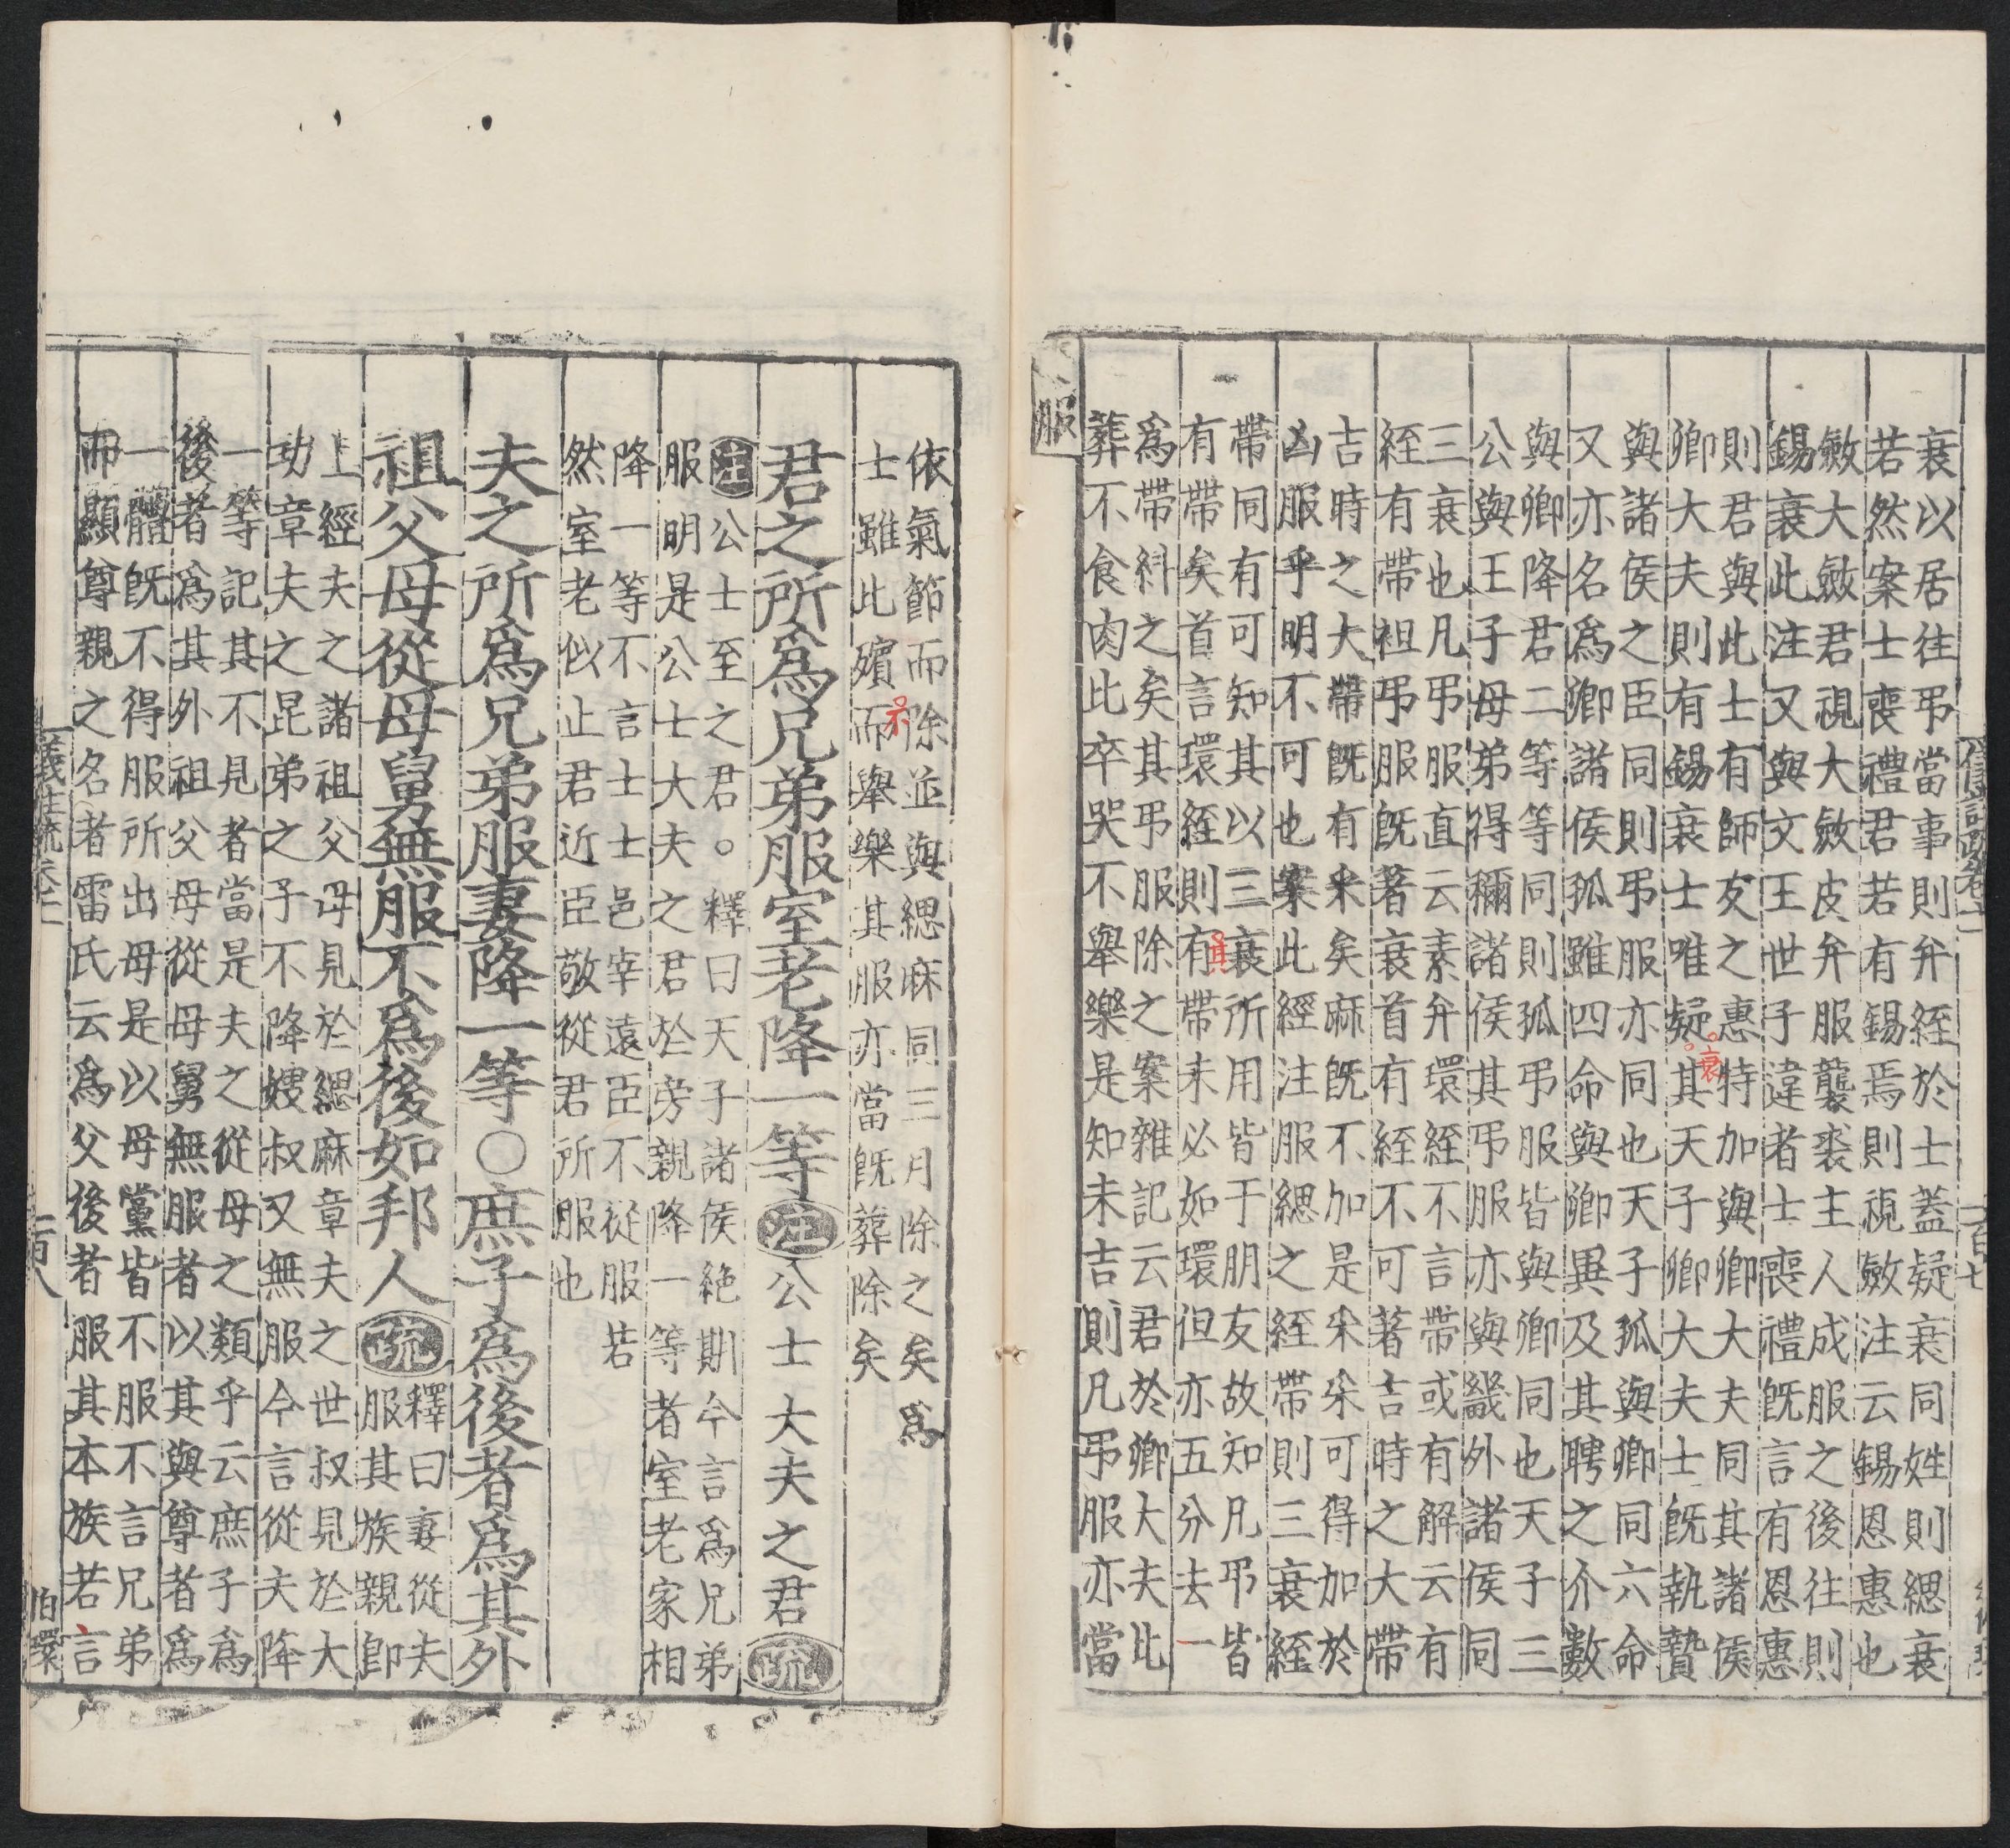 衰以居往弔當事則弁絰於士蓋疑衰同姓則緦衰
若然案士喪禮君若有錫焉則視斂注云錫恩惠也
斂大斂君視大斂皮弁服襲裘主人成服之後往則
錫衰此注又與文王世子違者士喪禮既言有恩惠
則君與此士有師友之惠特加與卿大夫同其諸侯
卿大夫則有錫衰士唯疑其天子卿大夫士既執贄
衰
與諸侯之臣同則弔服亦同也天子孤與卿同六命
又亦名爲卿諸侯孤雖四命與卿異及其聘之介數
與卿降君二等等同則孤弔服皆與卿同也天子三
公與王子母弟得稱諸侯其弔服亦與畿外諸侯同
三衰也凡弔服直云素弁環絰不言帶或有解云有
絰有帶袒弔服既著衰首有絰不可著吉時之大帶
吉時之大帶既有采矣麻既不加是采采可得加於
凶服乎明不可也案此經注服緦之絰帶則三衰絰
帶同有可知其以三衰所用皆于朋友故知凡弔皆
有帶矣首言環絰則有帶未必如環但亦五分去一
其
爲帶糾之矣其弔服除之案雜記云君於卿大夫比
葬不食肉此卒哭不舉樂是知未吉則凡弔服亦當
服
依氣節而除並與緦麻同三月除之矣爲
士雖此殯而舉樂其服亦當既葬除矣
不
君之所爲兄弟服室老降一等注公士大夫之君疏
注公士至之君○釋曰天子諸侯絶期今言爲兄弟
服明是公士大夫之君於旁親降一等者室老家相
降一等不言士士邑宰遠臣不從服若
然室老似止君近臣敬從君所服也
夫之所爲兄弟服妻降一等○庶子爲後者爲其外
祖父母從母舅無服不爲後如邦人疏
釋曰妻從夫
服其族親卽
上經夫之諸祖父母見於緦麻章夫之世叔見於大
功章夫之昆弟之子不降嫂叔又無服今言從夫降
一等記其不見者當是夫之從母之類乎云庶子爲
後者爲其外祖父母從母舅無服者以其與尊者爲
一體既不得服所出母是以母黨皆不服不言兄弟
而顯尊親之名者雷氏云爲父後者服其本族若言
二百八
伯環